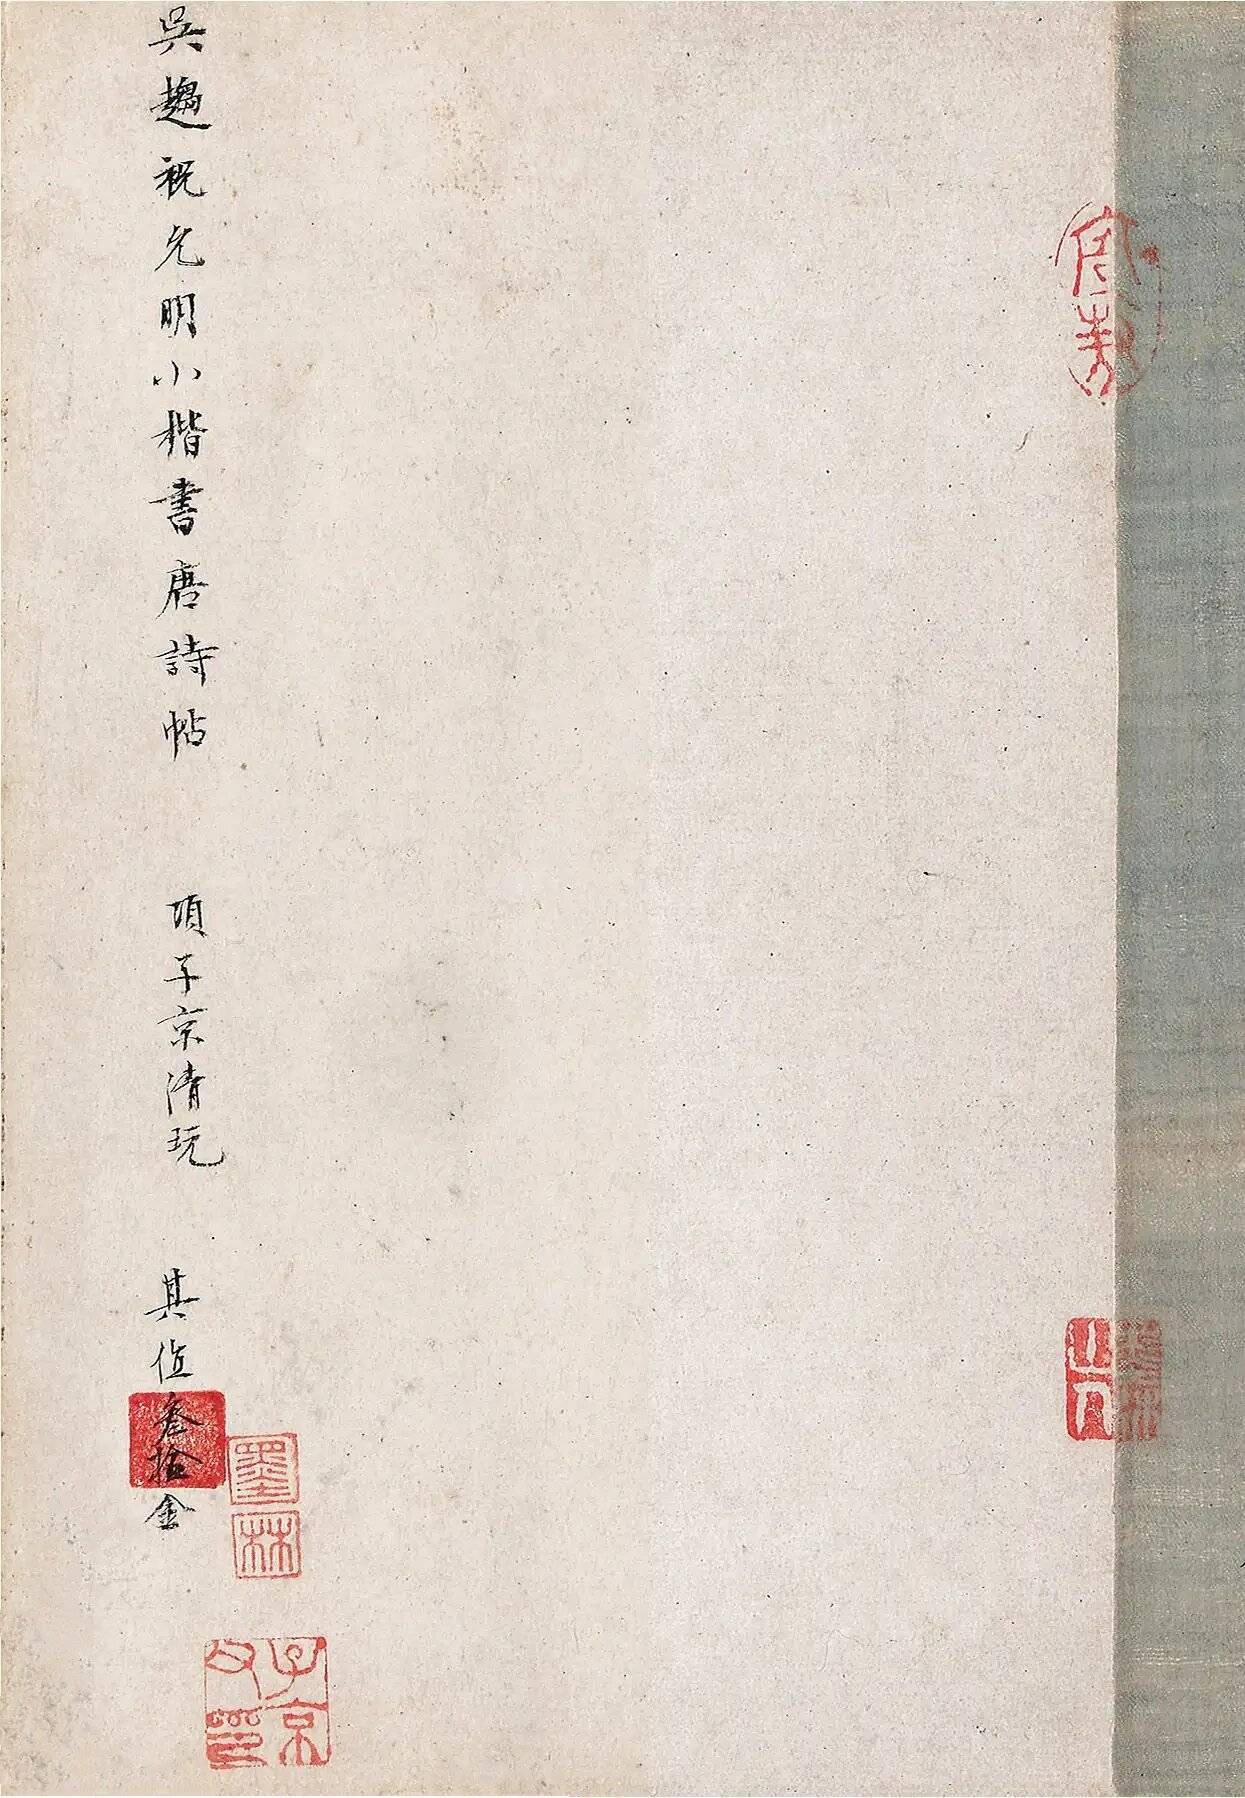 吳趨祝允明小楷書唐詩帖　項子京清玩　其值叁拾金
墨
林
子京
父印